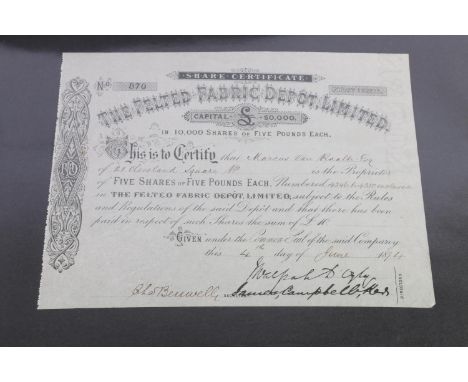 SHARE CERTIFICATE
No. 870
THE FELTED FABRIC DEPÔT, LIMITED.
CAPITAL £50,000.
IN 10,000 SHARES OF FIVE POUNDS EACH.
This is to Certify that Marcus Van Raalte Esq
of 22 Cleveland Square is the Proprietor
of FIVE SHARES OF FIVE POUNDS EACH, Numbered
in THE FELTED FABRIC DEPÔT LIMITED, subject to the Rules
and Regulations of the said Depôt and that there has been
paid in respect of such Shares the sum of £
GIVEN under the Common Seal of the said Company
this 4th day of June 1874
Chas Benwell SECRETARY James Campbell
DIRECTORS